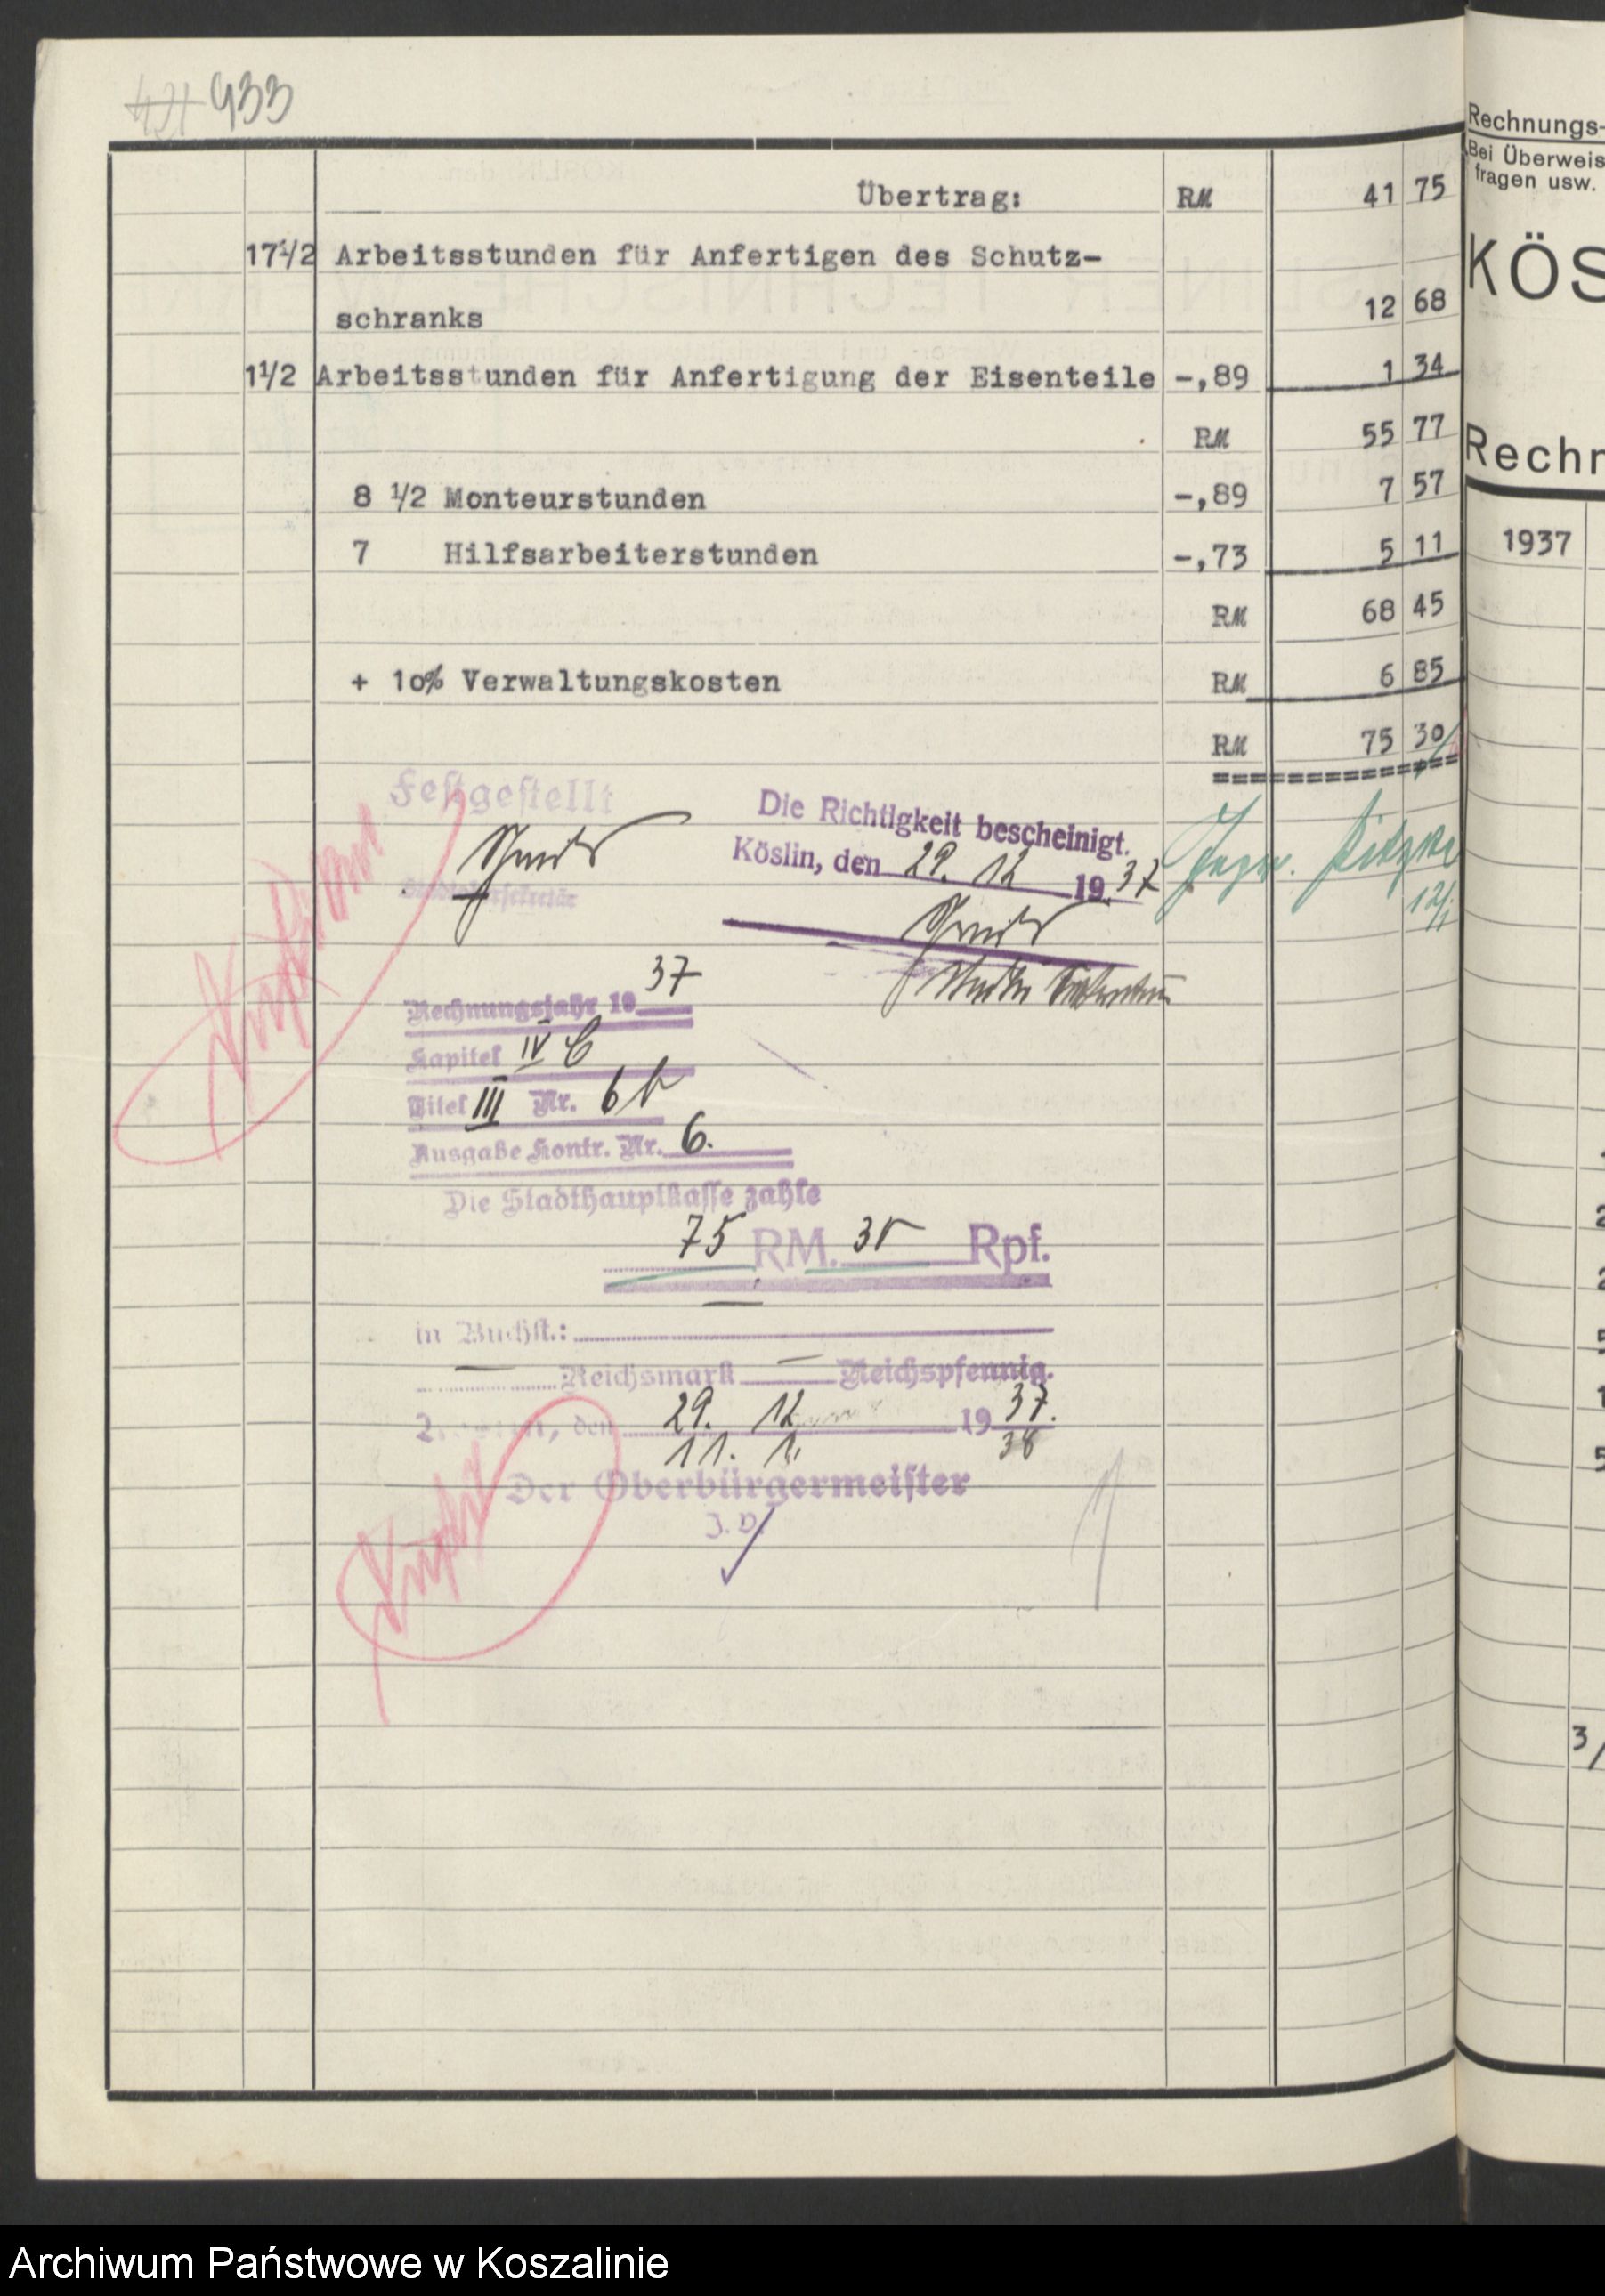 933
Übertrag: RM 41 75
17 1/2 Arbeitsstunden für Anfertigen des Schutz-
schranks 12 68
1 1/2 Arbeitsstunden für Anfertigung der Eisenteile -,89 1 34
RM 55 77
8 1/2 Monteurstunden -,89 7 57
7 Hilfsarbeiterstunden -,73 5 11
RM 68 45
+ 10% Verwaltungskosten RM 6 85
RM 75 30
Festgestellt
Die Richtigkeit bescheinigt.
Köslin, den 29. 12 19 37
12/1
Rechnungsjahr 19 37
Kapitel IV
Titel III Nr. 6
Ausgabe Kontr. Nr. 6.
Die Stadthauptkasse zahle
75 RM. 30 Rpf.
in Buchst.:
Reichsmark Reichspfennig.
den 29. 12 19 37.
11. 1. 38
Der Oberbürgermeister
J. V.
Rechnungs-
Bei Überweis
fragen usw.
KÖS
Rechn
1937
2
2
5
1
5
3/
Archiwum Państwowe w Koszalinie